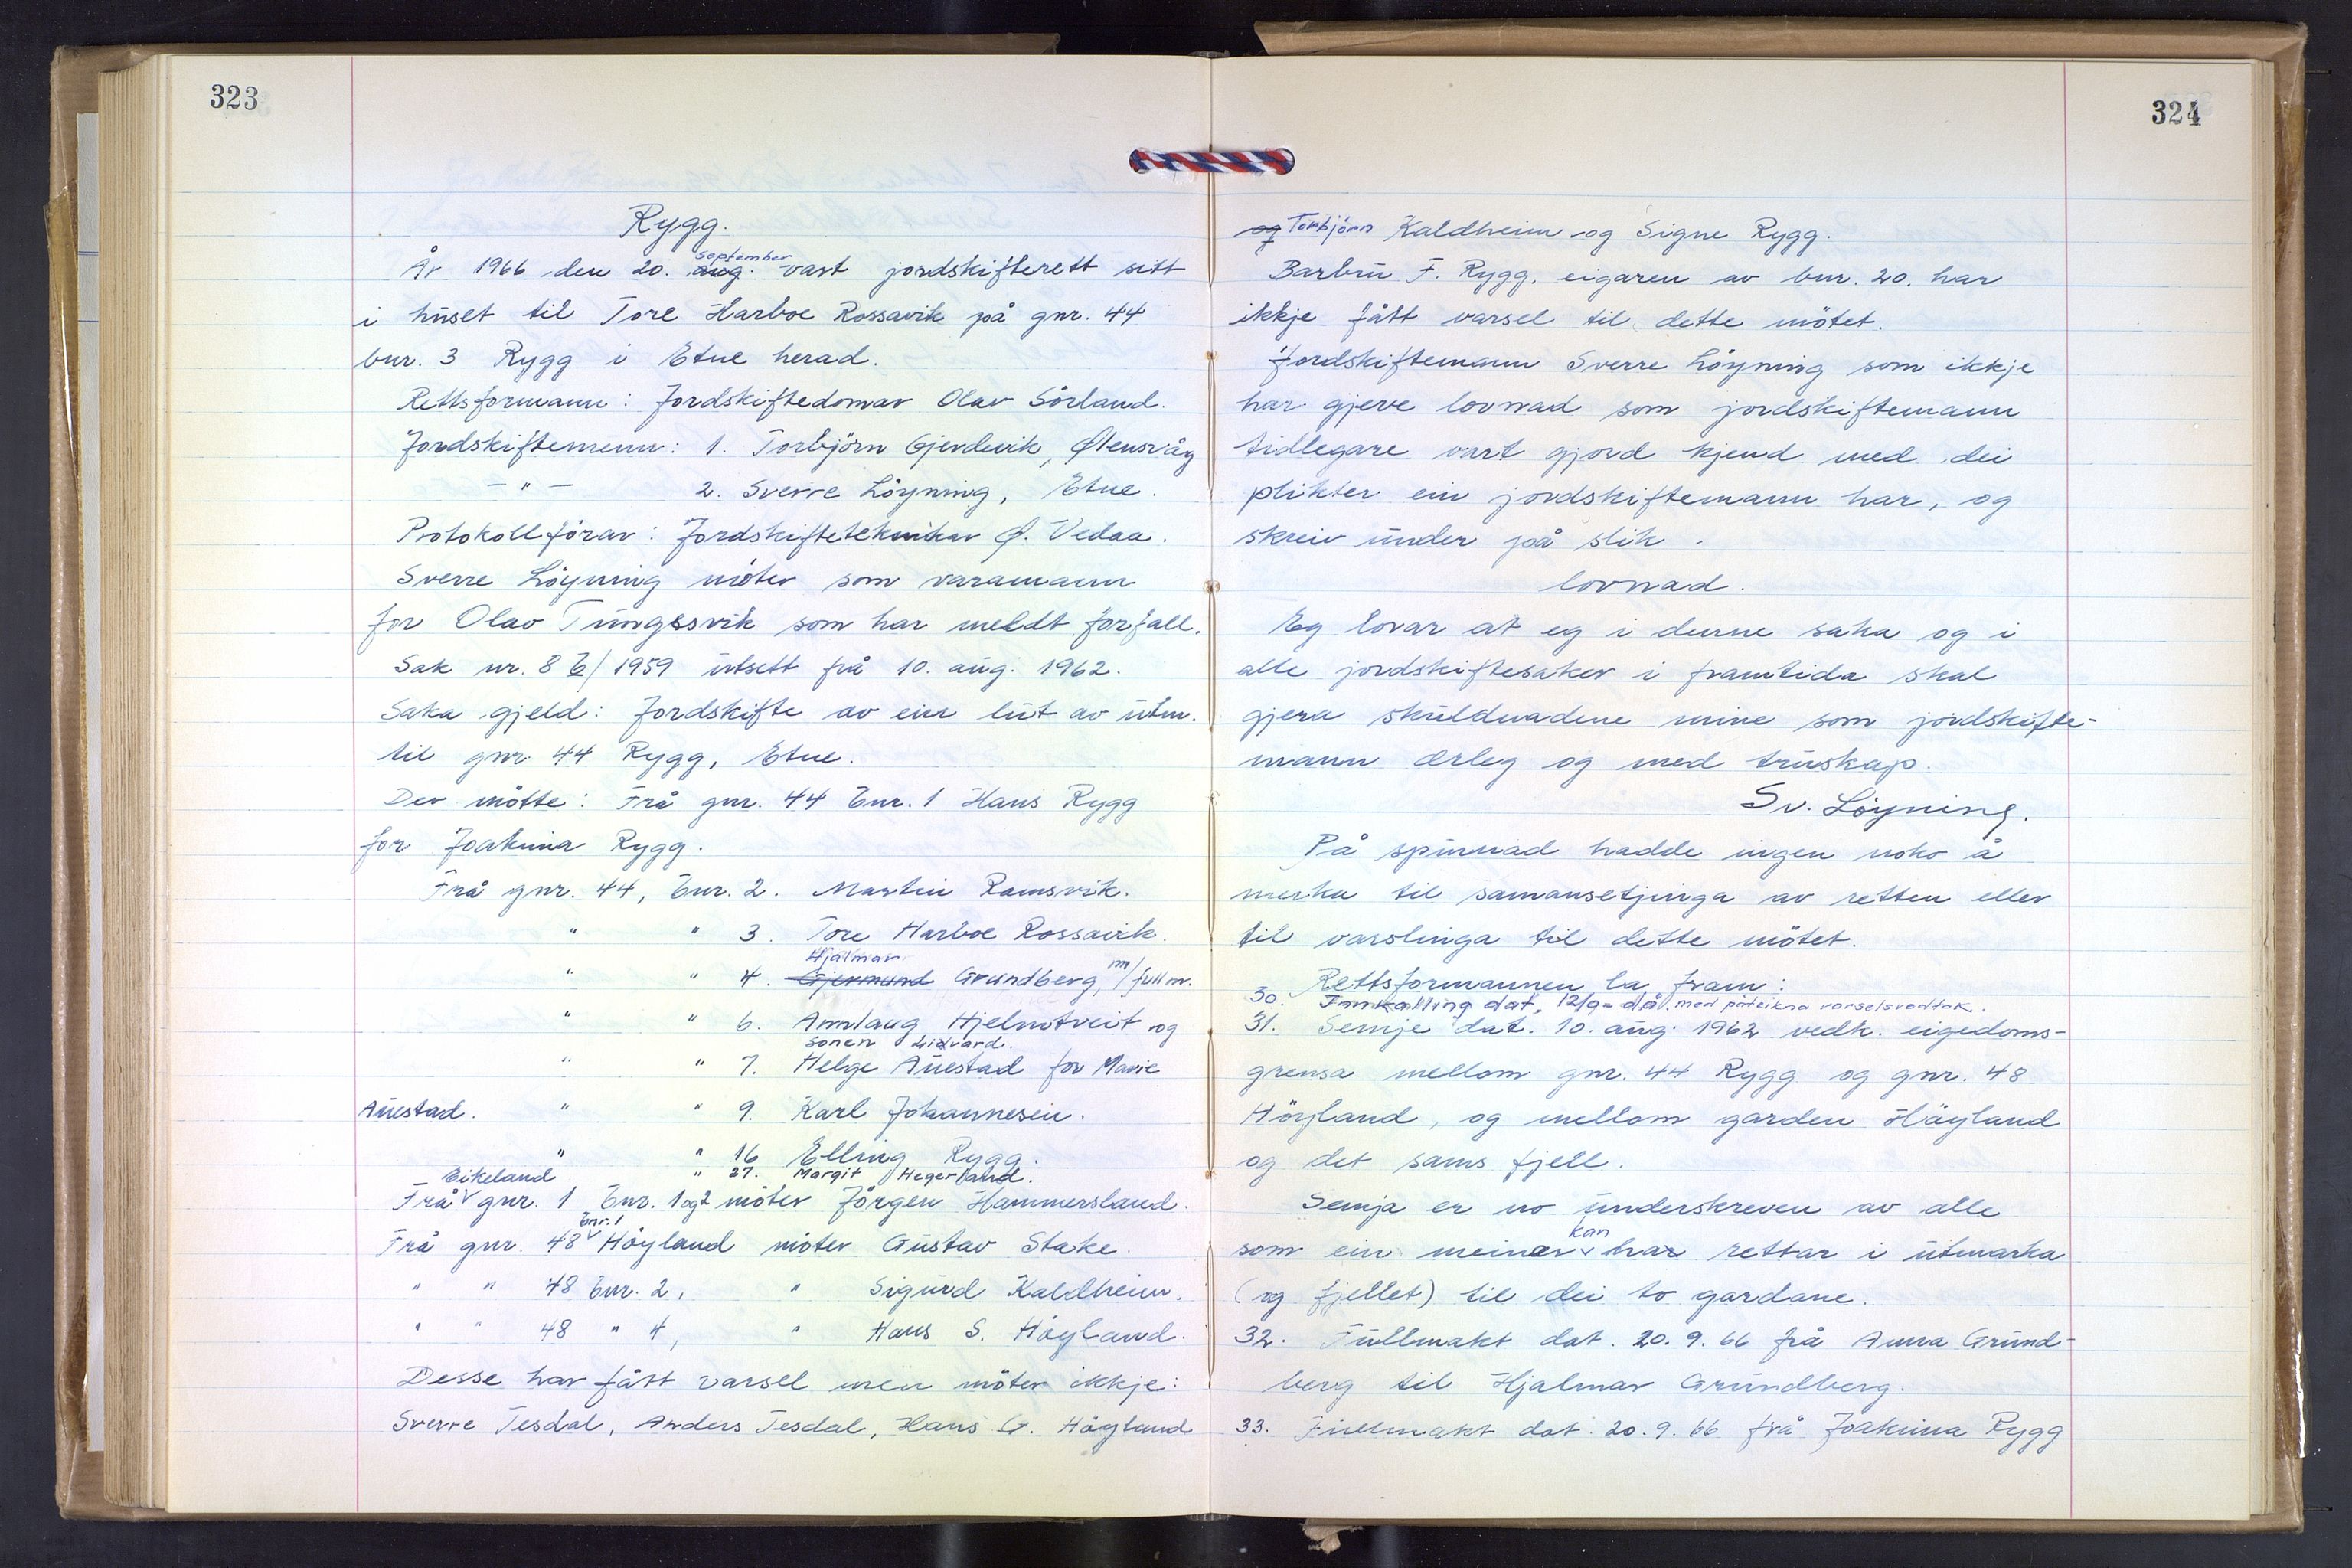 323
Rygg.
År 1966 den 20. aug. september vart jordskifterett sett
i huset til Tore Harboe Rossavik på gnr. 44
bnr. 3 Rygg i Etne herad.
Rettsformann: Jordskiftedomar Olav Sørland.
Jordskiftemenn: 1. Torbjörn Gjerdevik, Ølensvåg
— " — 2. Sverre Löyning, Etne.
Protokollförar: Jordskifteteknikar Ø. Vedaa.
Sverre Löyning möter som varamann
for Olav Tungesvik som har meldt forfall.
Sak nr. 8 b/1959 utsett frå 10. aug. 1962.
Saka gjeld: Jordskifte av ein lut av utm.
til gnr. 44 Rygg, Etne.
Der mötte: Frå gnr. 44 bnr. 1 Hans Rygg
for Joakima Rygg.
Frå gnr. 44, bnr. 2. Martin Ramsvik.
" " 3. Tore Harboe Rossavik.
" " 4. Gjermund Hjalmar Grundberg, m/fullm.
" " 6. Annlaug Hjelmtveit og
sonen Lidvard.
" " 7. Helge Auestad for Marie
Auestad. " " 9. Karl Johannesen.
" " 16 Elling Rygg.
" 27. Margit Hegerland.
Frå Eikeland gnr. 1 bnr. 1 og 2 möter Jörgen Hammersland.
Frå gnr. 48 bnr. 1 Höyland möter Gustav Stake.
" " 48 bnr. 2, " Sigurd Kaldheim.
" " 48 " 4, " Hans S. Höyland.
Desse har fått varsel men möter ikkje:
Sverre Tesdal, Anders Tesdal, Hans G. Höyland
324
og Torbjörn Kaldheim og Signe Rygg.
Barbru F. Rygg. eigaren av bnr. 20. har
ikkje fått varsel til dette mötet.
Jordskiftemann Sverre Löyning som ikkje
har gjeve lovnad som jordskiftemann
tidlegare vart gjord kjend med dei
plikter ein jordskiftemann har, og
skreiv under på slik .
lovnad.
Eg lovar at eg i denne saka og i
alle jordskiftesaker i framtida skal
gjera skuldnadene mine som jordskifte-
mann ærleg og med truskap.
Sv. Löyning.
På spurnad hadde ingen noko å
merka til samansetjinga av retten eller
til varslinga til dette mötet.
Rettsformannen la fram:
30. Innkalling dat. 12/9 d.å. med påteikna varselsvedtak.
31. Semje dat. 10. aug. 1962 vedk. eigedoms-
grensa mellom gnr. 44 Rygg og gnr. 48
Höyland, og mellom garden Höyland
og det sams fjell.
Semja er no underskreven av alle
som ein meiner kan har rettar i utmarka
(og fjellet) til dei to gardane.
32. Fullmakt dat. 20.9.66 frå Anna Grund-
berg til Hjalmar Grundberg.
33. Fullmakt dat. 20.9.66 frå Joakima Rygg